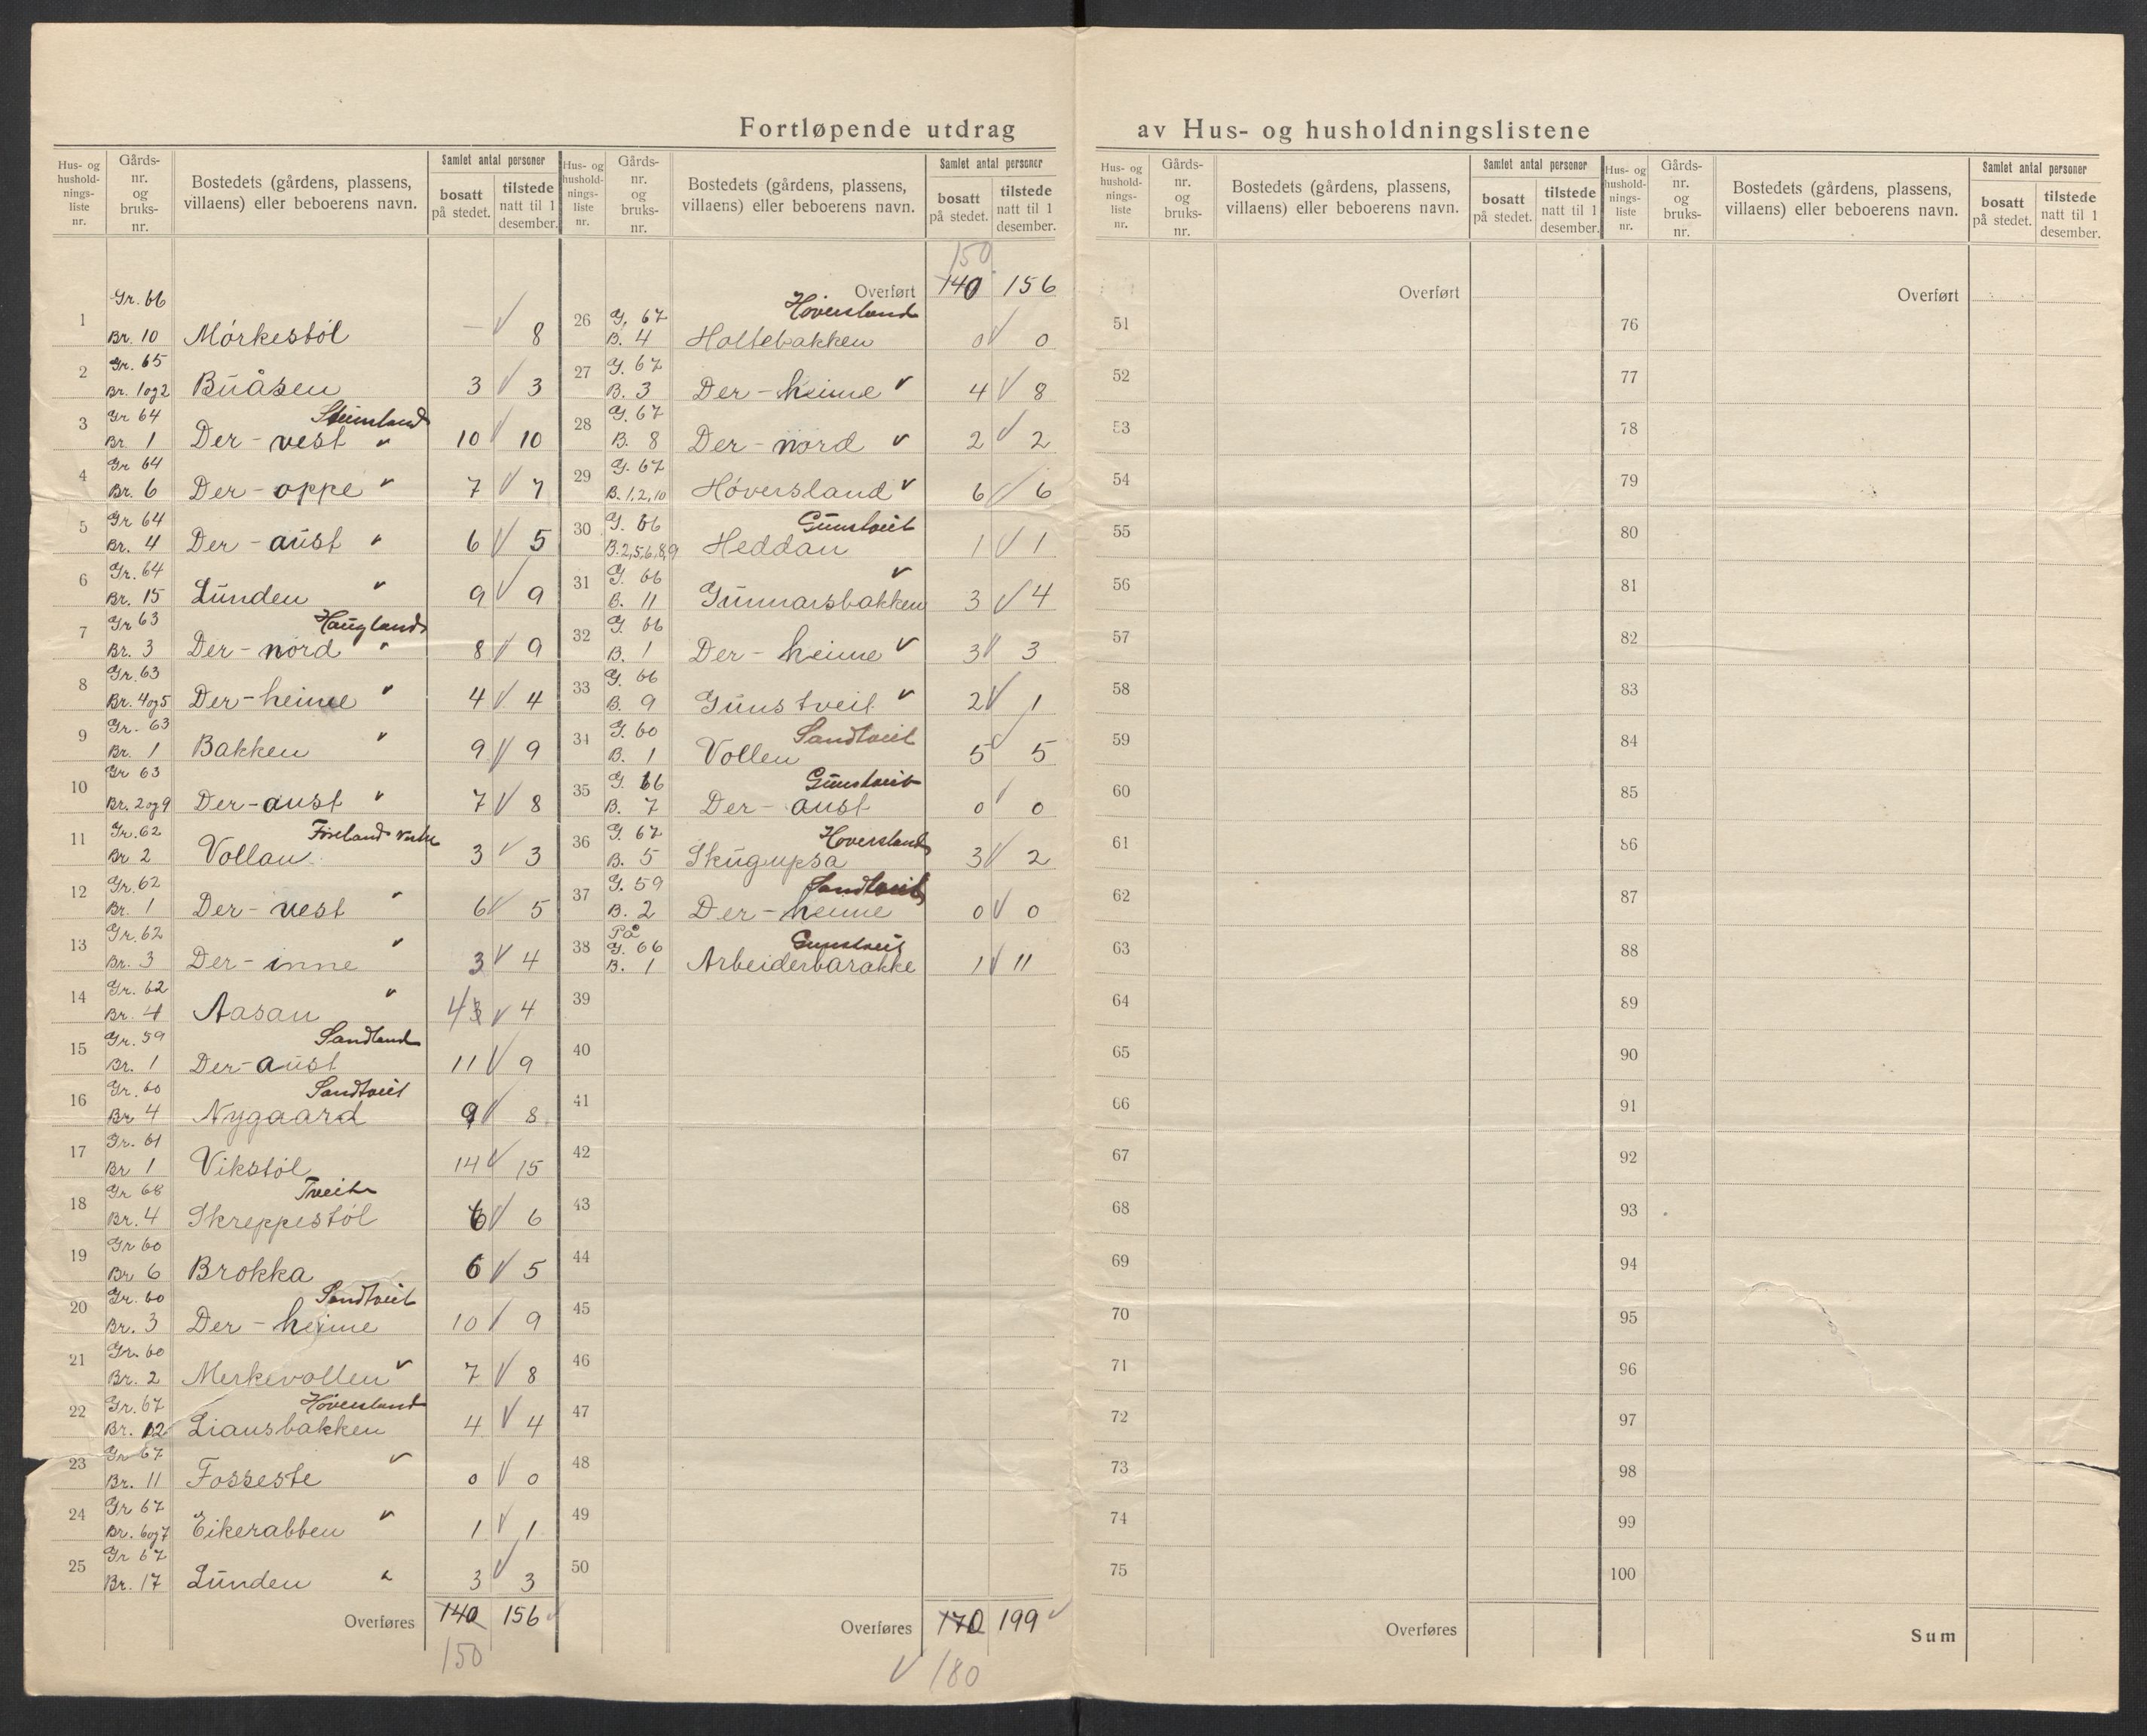 Fortløpende utdrag av Hus- og husholdningslistene
Hus- og hushold- nings- liste nr. | Gårds- nr. og bruks- nr. | Bostedets (gårdens, plassens, villaens) eller beboerens navn. | Samlet antal personer | bosatt på stedet. | tilstede natt til 1 desember.
1 Gr. 66 Br. 10 Mørkestöl — 8
2 Gr. 65 Br. 1og2 Buåsen 3 3
3 Gr 64 Br. 1 Der-vest " 10 10
4 Gr 64 Br. 6 Der-oppe " 7 7
5 Gr 64 Br. 4 Der-aust " 6 5
6 Gr. 64 Br. 15 Lunden " 9 9
7 Gr 63 Br. 3 Haugland Der-nord " 8 9
8 Gr. 63 Br. 4og5 Der-heime " 4 4
9 Gr. 63 Br. 1 Bakken " 9 9
10 Gr 63 Br. 2og9 Der-aust " 7 8
11 Gr. 62 Br 2 Vollan 3 3
12 Gr. 62 Br. 1 Der-vest " 6 5
13 Gr. 62 Br. 3 Der-inne " 3 4
14 Gr. 62 Br. 4 Aasan " 4 3 4
15 Gr. 59 Br. 1 Sandland Der-aust 11 9
16 Gr. 60 Br 4 Sandtveit Nygaard 9 8
17 Gr. 61 Br 1 Vikstöl 14 15
18 Gr 68 Br. 4 Tveit Skreppestöl 6 6
19 Gr 60 Br 6 Brokka 6 5
20 Gr. 60 Br. 3 Sandtveit Der-heime 10 9
21 Gr. 60 Br. 2 Merkevollen " 7 8
22 Gr. 67 Br. 12 Høversland Liansbakken 4 4
23 Gr 67 Br. 11 Fosseste " 0 0
24 Gr 67 Br. 6og7 Eikerabben " 1 1
25 Gr 67 Br. 17 Lunden " 3 3
Overføres 140 156
150
Hus- og hushold- nings- liste nr. | Gårds- nr. og bruks- nr. | Bostedets (gårdens, plassens, villaens) eller beboerens navn. | Samlet antal personer | bosatt på stedet. | tilstede natt til 1 desember.
150
Overført 140 156
26 G. 67 B. 4 Høversland Holtebakken 0 0
27 G. 67 B. 3 Der-heime " 4 8
28 G. 67 B. 8 Der-nord " 2 2
29 G. 67 B. 1,2,10 Høversland " 6 6
30 G. 66 B. 2,5,6,8,9 Gunstveit Heddan 1 1
31 G. 66 B. 11 Gunnarsbakken " 3 4
32 G. 66 B. 1 Der-heime " 3 3
33 G. 66 B. 9 Gunstveit " 2 1
34 G. 60 B. 1 Sandtveit Vollen 5 5
35 G. 66 B. 7 Gunstveit Der-aust 0 0
36 G. 67 B. 5 Høversland Skugupsa 3 2
37 G. 59 B. 2 Der-heime 0 0
38 På G. 66 B. 1 Gunstveit Arbeiderbarakke 1 11
39
40
41
42
43
44
45
46
47
48
49
50
Overføres 170 199
180
Hus- og hushold- nings- liste nr. | Gårds- nr. og bruks- nr. | Bostedets (gårdens, plassens, villaens) eller beboerens navn. | Samlet antal personer | bosatt på stedet. | tilstede natt til 1 desember.
Overført
51
52
53
54
55
56
57
58
59
60
61
62
63
64
65
66
67
68
69
70
71
72
73
74
75
Overføres
Hus- og hushold- nings- liste nr. | Gårds- nr. og bruks- nr. | Bostedets (gårdens, plassens, villaens) eller beboerens navn. | Samlet antal personer | bosatt på stedet. | tilstede natt til 1 desember.
Overført
76
77
78
79
80
81
82
83
84
85
86
87
88
89
90
91
92
93
94
95
96
97
98
99
100
Sum